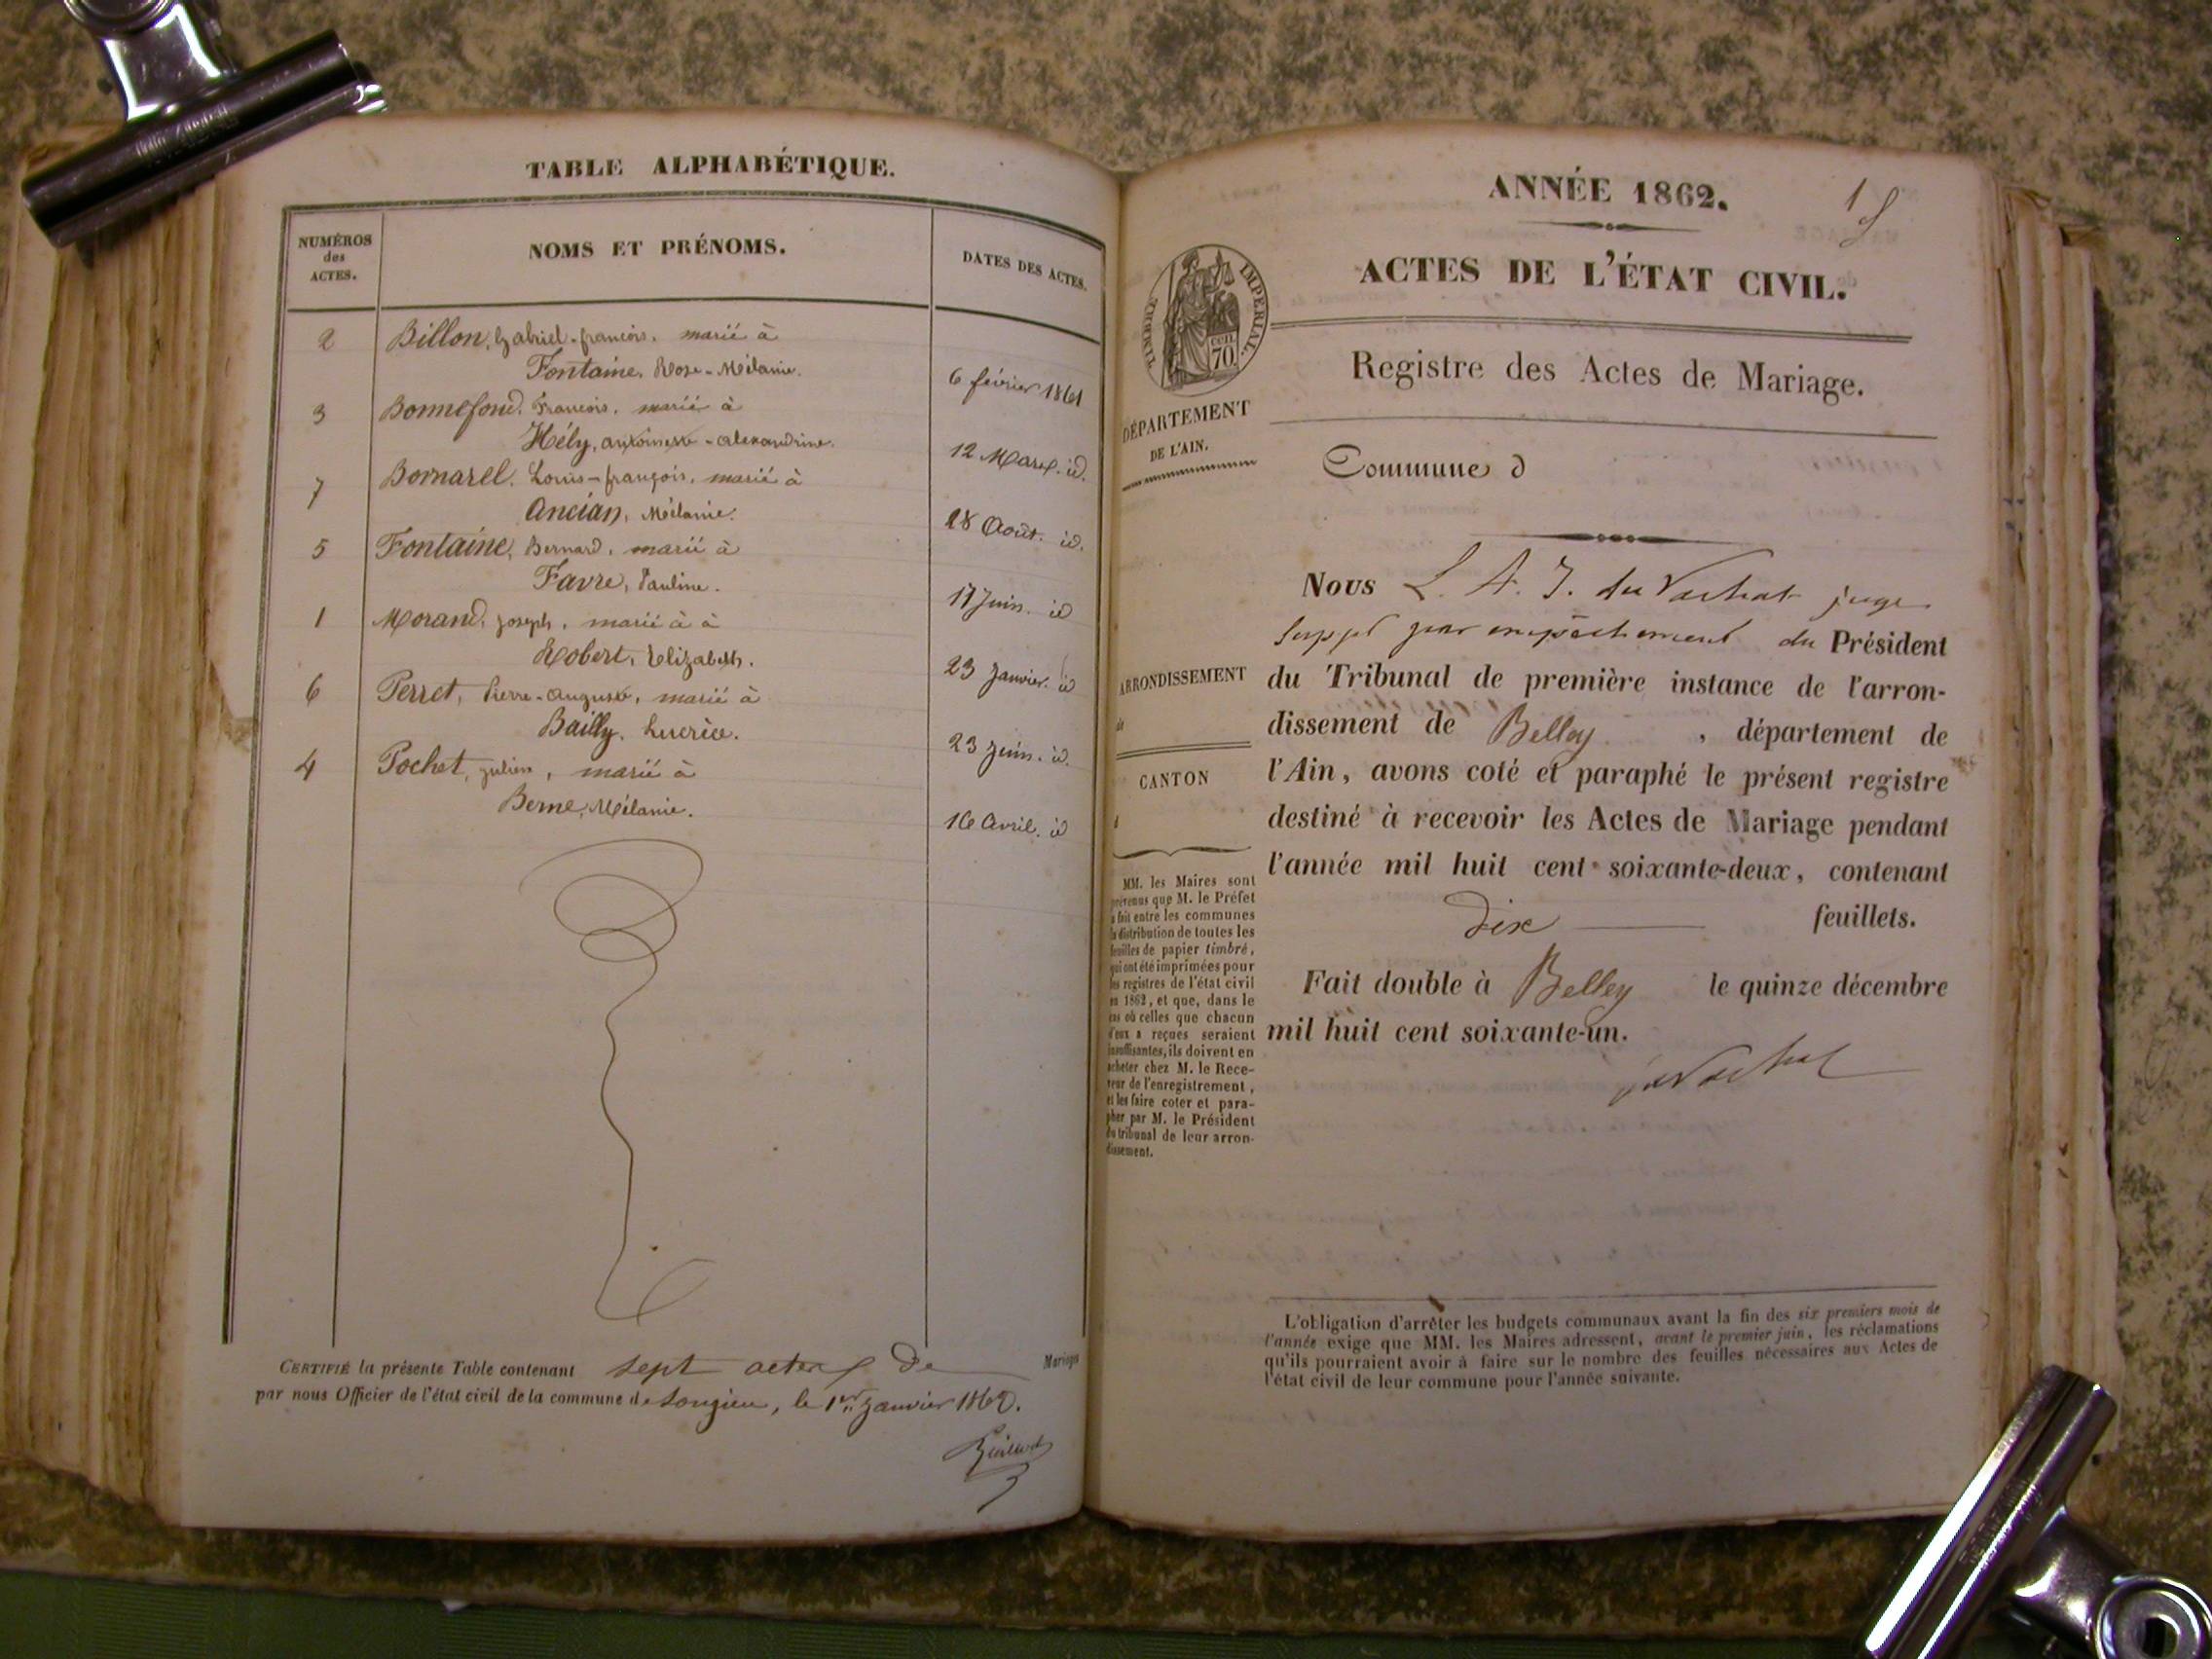 TABLE ALPHABÉTIQUE.
NUMÉROS
des
ACTES.
NOMS ET PRÉNOMS.
DATES DES ACTES.
2 Billon, Gabriel-françois, marié à
Fontaine, Rose-Mélanie. 6 février 1861
3 Bonnefond, François, marié à
Hély, antoinette-alexandrine. 12 Mars. id.
7 Bornarel, Louis-françois, marié à
Ancian, Mélanie. 28 Août. id.
5 Fontaine, Bernard, marié à
Favre, Pauline. 17 Juin. id
1 Morand, Joseph, marié à à
Robert, Elizabeth. 23 Janvier. id
6 Perret, Pierre-auguste, marié à
Bailly, Lucrèce. 23 Juin. id
4 Pochet, Julien, marié à
Berne, Mélanie. 16 Avril. id
CERTIFIÉ la présente Table contenant sept actes de Mariages
par nous Officier de l'état civil de la commune de Songieu, le 1er Janvier 1862.
ANNÉE 1862.
1
ACTES DE L'ÉTAT CIVIL.
TIMBRE IMPÉRIAL.
70
Registre des Actes de Mariage.
DÉPARTEMENT
DE L'AIN.
Commune d
Nous L. A. J. du Vachat juge
suppt par empêchement du Président
ARRONDISSEMENT
de
du Tribunal de première instance de l'arron-
dissement de Belley, département de
CANTON
d
l'Ain, avons coté et paraphé le présent registre
destiné à recevoir les Actes de Mariage pendant
l'année mil huit cent soixante-deux, contenant
dix feuillets.
Fait double à Belley le quinze décembre
mil huit cent soixante-un.
du Vachat
MM. les Maires sont
prévenus que M. le Préfet
a fait entre les communes
la distribution de toutes les
feuilles de papier timbré,
qui ont été imprimées pour
les registres de l'état civil
en 1862, et que, dans le
cas où celles que chacun
d'eux a reçues seraient
insuffisantes, ils doivent en
acheter chez M. le Rece-
veur de l'enregistrement,
et les faire coter et para-
pher par M. le Président
du tribunal de leur arron-
dissement.
L'obligation d'arrêter les budgets communaux avant la fin des six premiers mois de
l'année exige que MM. les Maires adressent, avant le premier juin, les réclamations
qu'ils pourraient avoir à faire sur le nombre des feuilles nécessaires aux Actes de
l'état civil de leur commune pour l'année suivante.